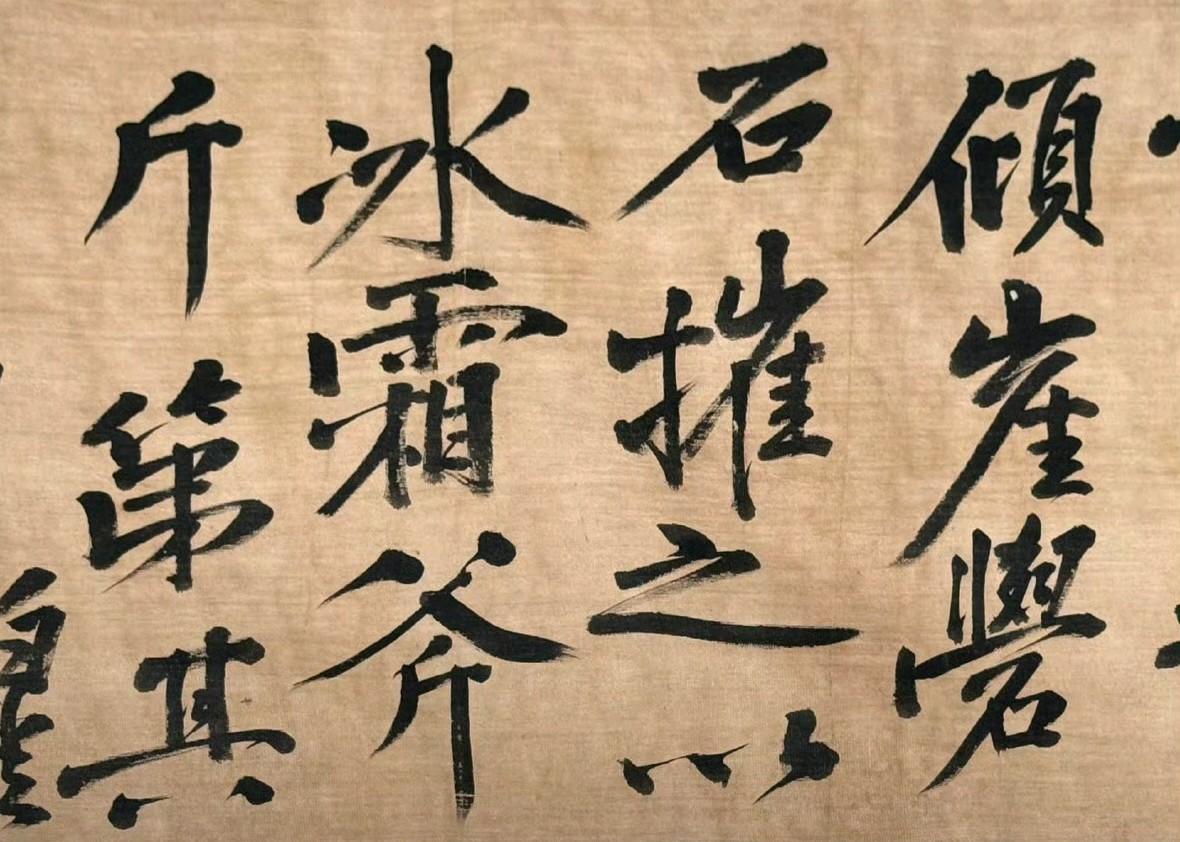 傾崖礜
石摧之以
冰霜斧
斤第其